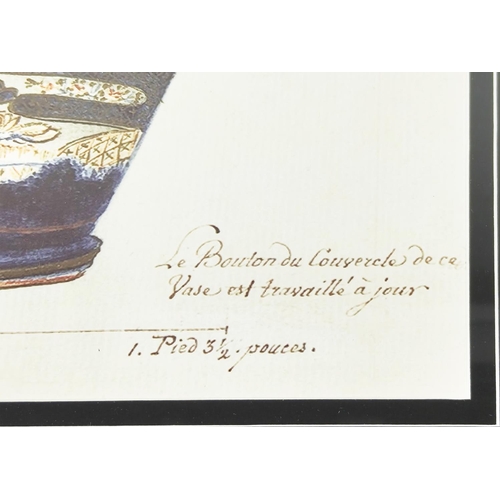 Le Bouton du Couvercle de ce
Vase est travaillé à jour
1. Pied 3½. pouces.